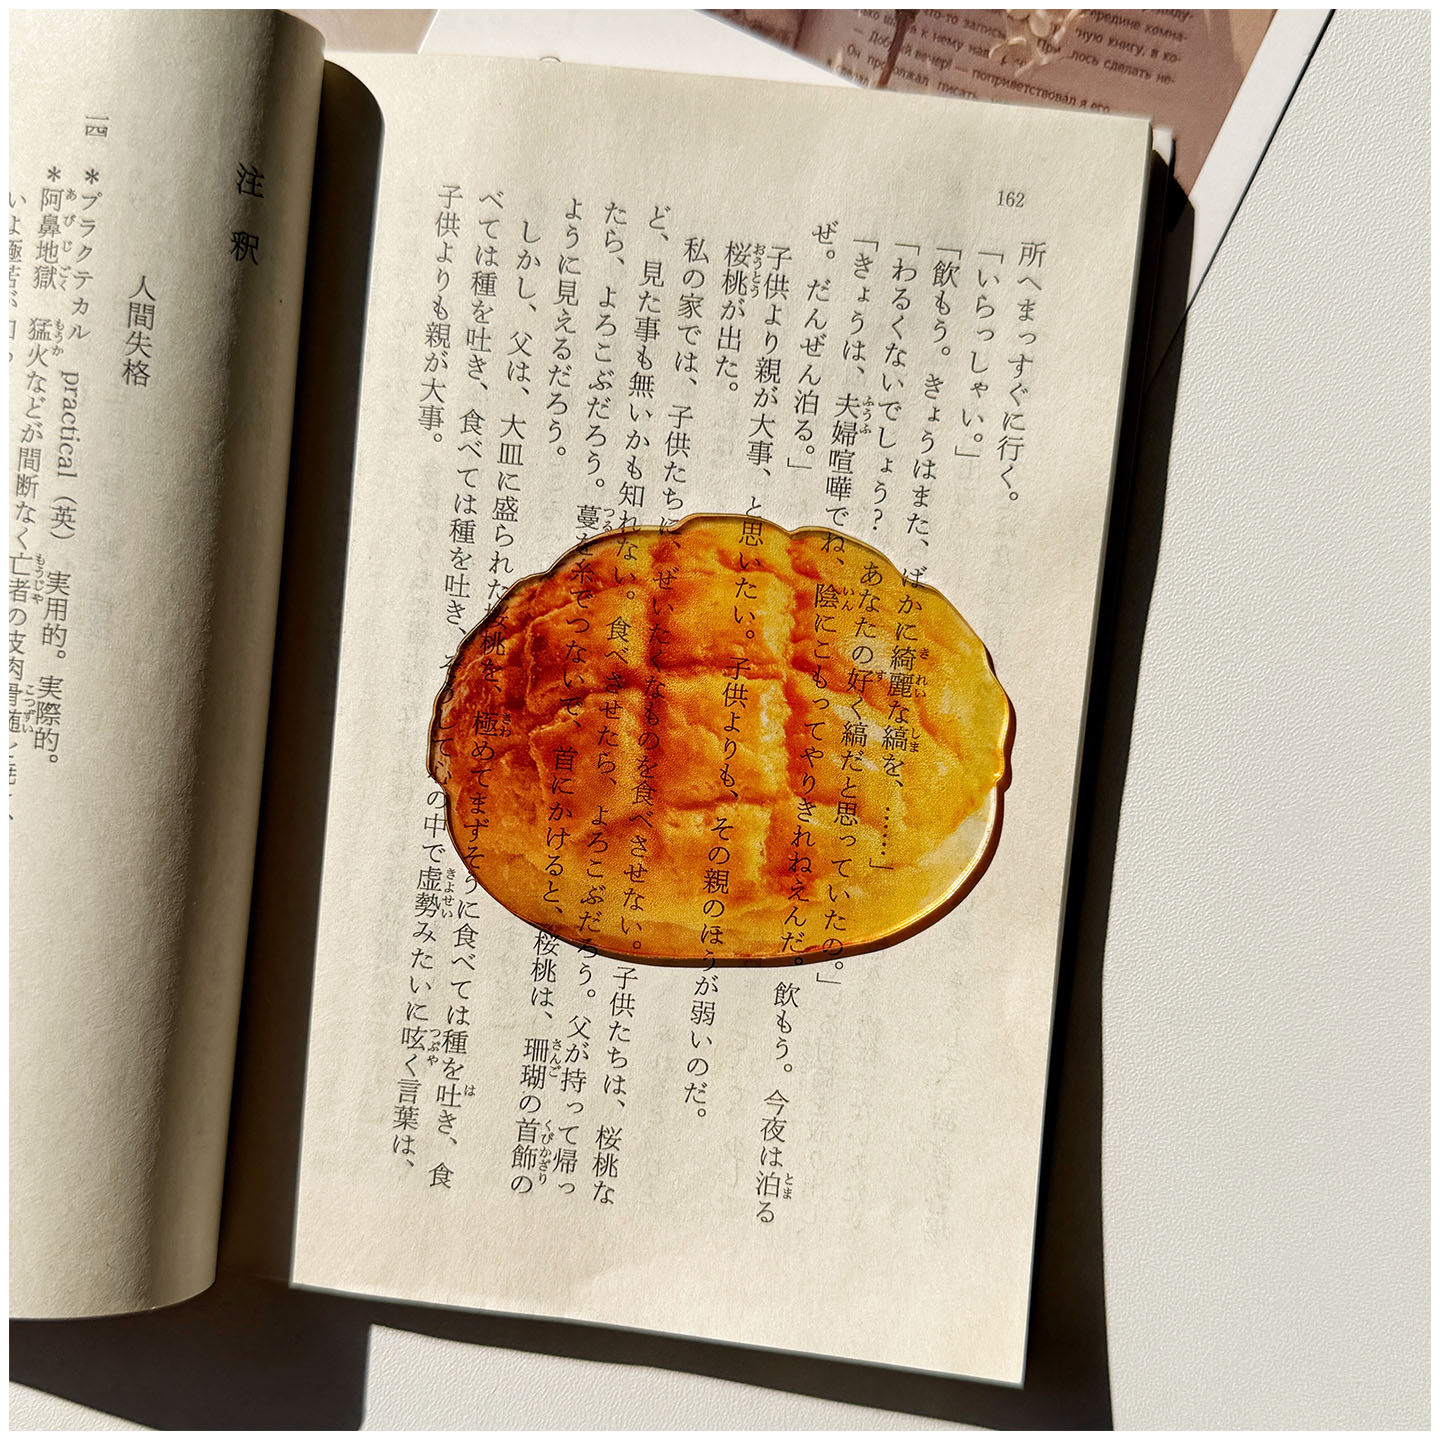 162
所へまっすぐに行く。
「いらっしゃい。」
「飲もう。きょうはまた、ばかに綺麗な縞を、……」
「わるくないでしょう? あなたの好く縞だと思っていたの。」
「きょうは、夫婦喧嘩でね、陰にこもってやりきれねえんだ。飲もう。今夜は泊る
ぜ。だんぜん泊る。」
子供より親が大事、と思いたい。子供よりも、その親のほうが弱いのだ。
桜桃が出た。
私の家では、子供たちに、ぜいたくなものを食べさせない。子供たちは、桜桃な
ど、見た事も無いかも知れない。食べさせたら、よろこぶだろう。父が持って帰っ
たら、よろこぶだろう。蔓を糸でつないで、首にかけると、桜桃は、珊瑚の首飾の
ように見えるだろう。
しかし、父は、大皿に盛られた桜桃を、極めてまずそうに食べては種を吐き、食
べては種を吐き、食べては種を吐き、そうして心の中で虚勢みたいに呟く言葉は、
子供よりも親が大事。
注釈
人間失格
一四 *プラクテカル practical（英） 実用的。実際的。
*阿鼻地獄 猛火などが間断なく亡者の皮肉骨随
что-то середине комна-
к нему книгу, в ко-
— Добрый вечер! — поприветствовал я его.
Он продолжал писать сделать не-